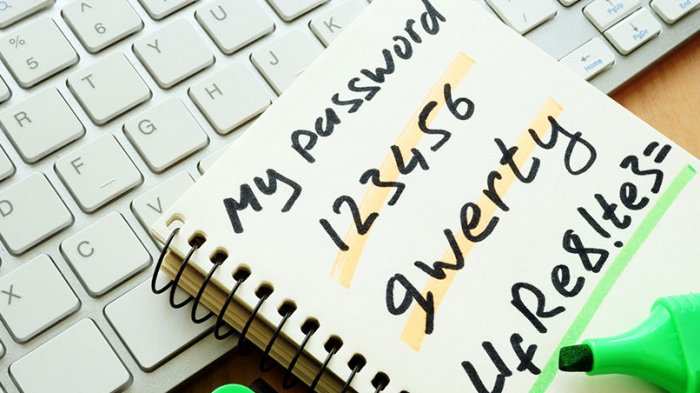 My password
123456
qwerty
4fRe8!te3=
%
5
^
6
R T Y U
D F G H J
X C V
PgUp
PgDn
Home